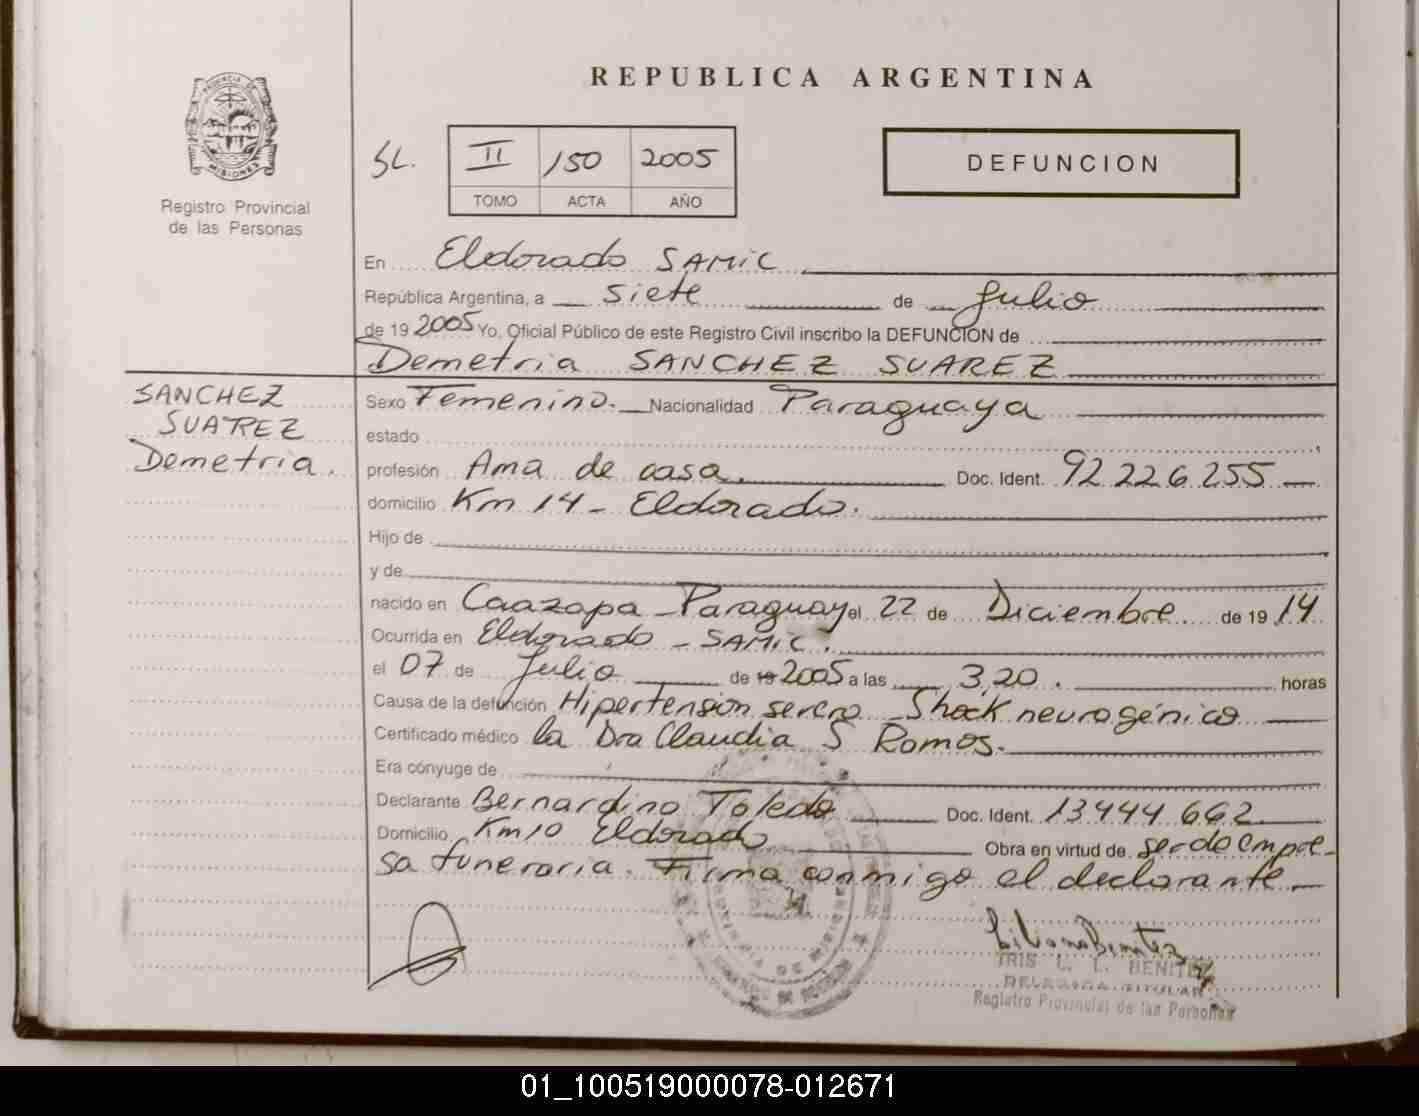 REPUBLICA ARGENTINA
PROVINCIA DE MISIONES
Registro Provincial
de las Personas
SL. II 150 2005
TOMO ACTA AÑO
DEFUNCION
En Eldorado SAMIC
República Argentina, a siete de Julio
de 19 2005 Yo, Oficial Público de este Registro Civil inscribo la DEFUNCION de
Demetria SANCHEZ SUAREZ
SANCHEZ
SUAREZ
Demetria.
Sexo Femenino. Nacionalidad Paraguaya
estado
profesión Ama de casa. Doc. Ident. 92.226.255
domicilio Km 14 - Eldorado.
Hijo de
y de
nacido en Caazapa - Paraguay el 22 de Diciembre de 19 14
Ocurrida en Eldorado - SAMIC.
el 07 de Julio de 19 2005 a las 3,20. horas
Causa de la defunción Hipertensión severa - Shock neurogénico
Certificado médico la Dra Claudia S Romos.
Era cónyuge de
Declarante Bernardino Toledo Doc. Ident. 13.444.662
Domicilio Km 10 Eldorado Obra en virtud de ser de empre-
sa funeraria. Firma conmigo el declarante
IRIS L. L. BENITEZ
DELEGADA TITULAR
Registro Provincial de las Personas
01_100519000078-012671